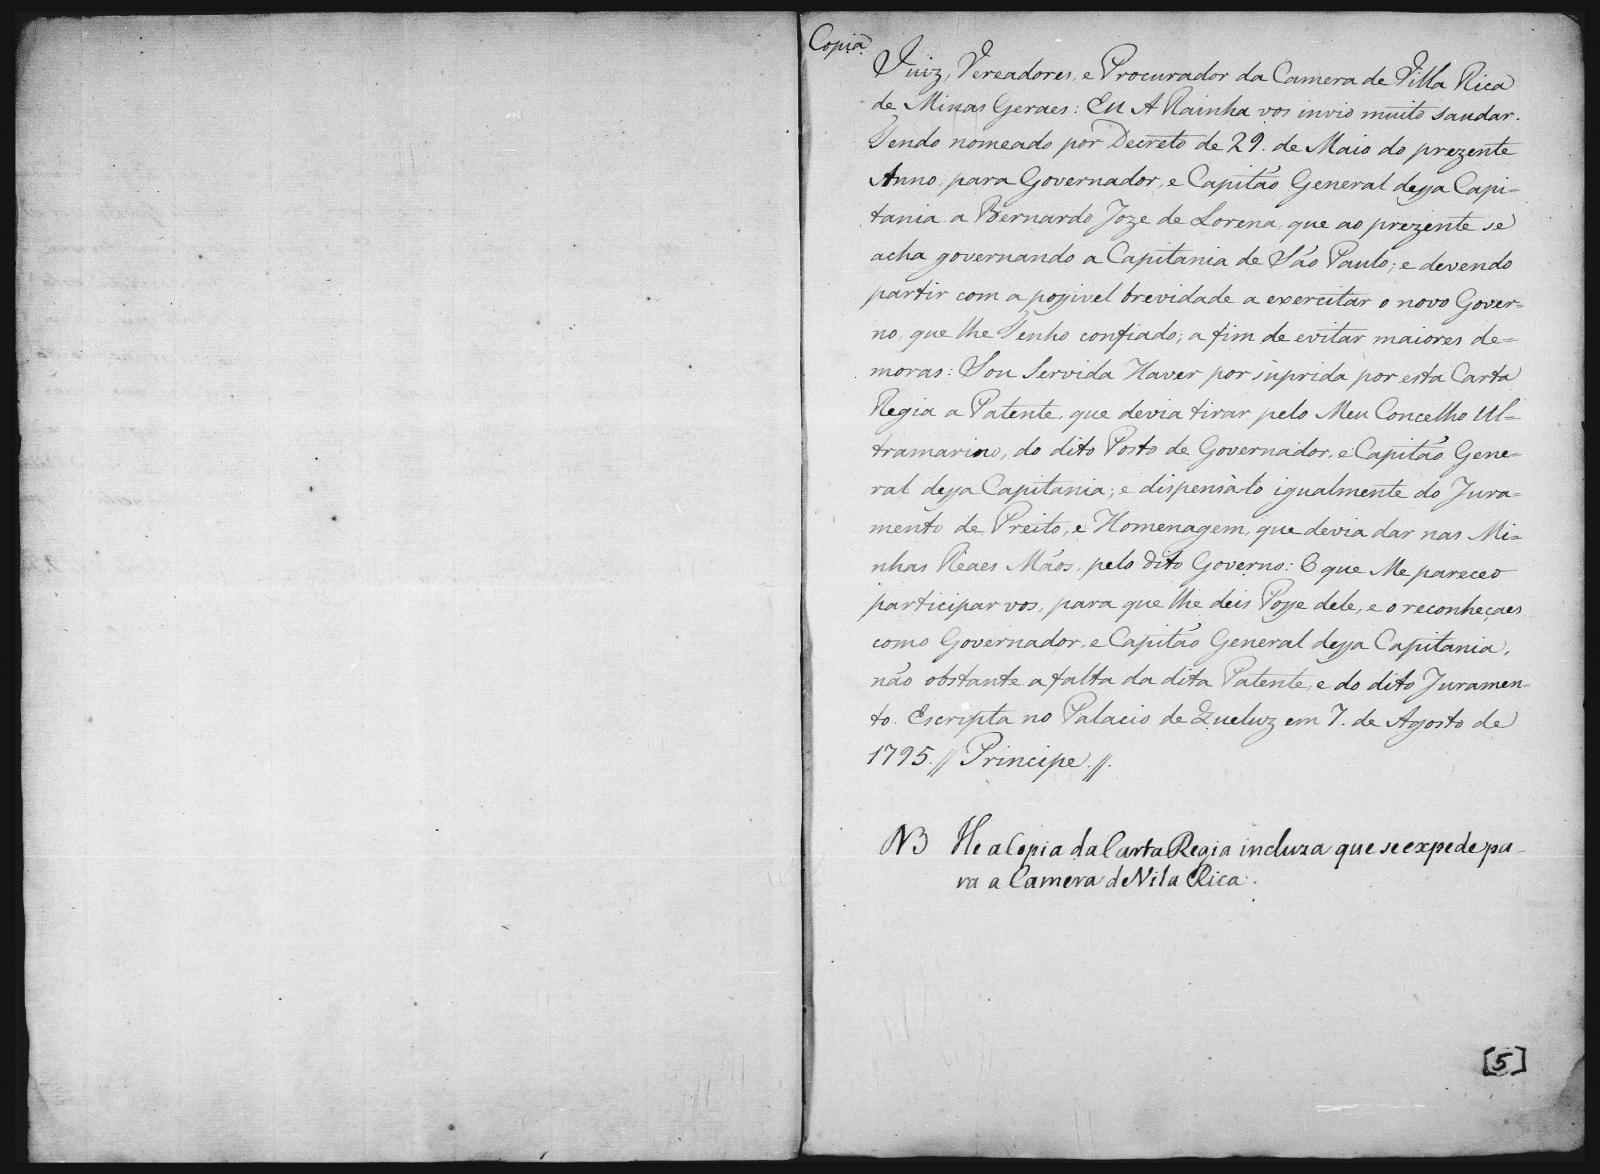 Copia
Juiz, Vereadores, e Procurador da Camera de Villa Rica
de Minas Geraes: Eu A Rainha vos invio muito saudar.
Tendo nomeado por Decreto de 29. de Maio do prezente
Anno, para Governador, e Capitão General dessa Capi=
tania a Bernardo Joze de Lorena, que ao prezente se
acha governando a Capitania de São Paulo; e devendo
partir com a possivel brevidade a exercitar o novo Gover=
no, que lhe Tenho confiado; a fim de evitar maiores de=
moras: Sou Servida Haver por suprida por esta Carta
Regia a Patente, que devia tirar pelo Meu Concelho Ul=
tramarino, do dito Posto de Governador, e Capitão Gene=
ral dessa Capitania; e dispensalo igualmente do Jura=
mento de Preito, e Homenagem, que devia dar nas Mi=
nhas Reaes Mãos, pelo dito Governo: O que Me pareceo
participar vos, para que lhe deis Posse dele, e o reconheçaes
como Governador, e Capitão General dessa Capitania,
não obstante a falta da dita Patente, e do dito Juramen=
to. Escripta no Palacio de Queluz em 7. de Agosto de
1795. // Principe. //.
NB He a Copia da Carta Regia incluza que se expede pa-
ra a Camera de Vila Rica.
[5]